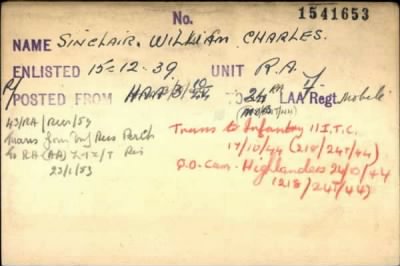 No. 1541653
NAME SINCLAIR. WILLIAM CHARLES.
ENLISTED 15-12-39. UNIT R.A.
POSTED FROM TO 24 LAA/Regt. Mobile
43/RA/
Trans from
to RA (AA)
23/1/53
Trans to Infantry 11 I.T.C.
17/10/44 (218/24T/44)
Q.O. Cam. Highlanders 24/10/44
(218/24T/44)